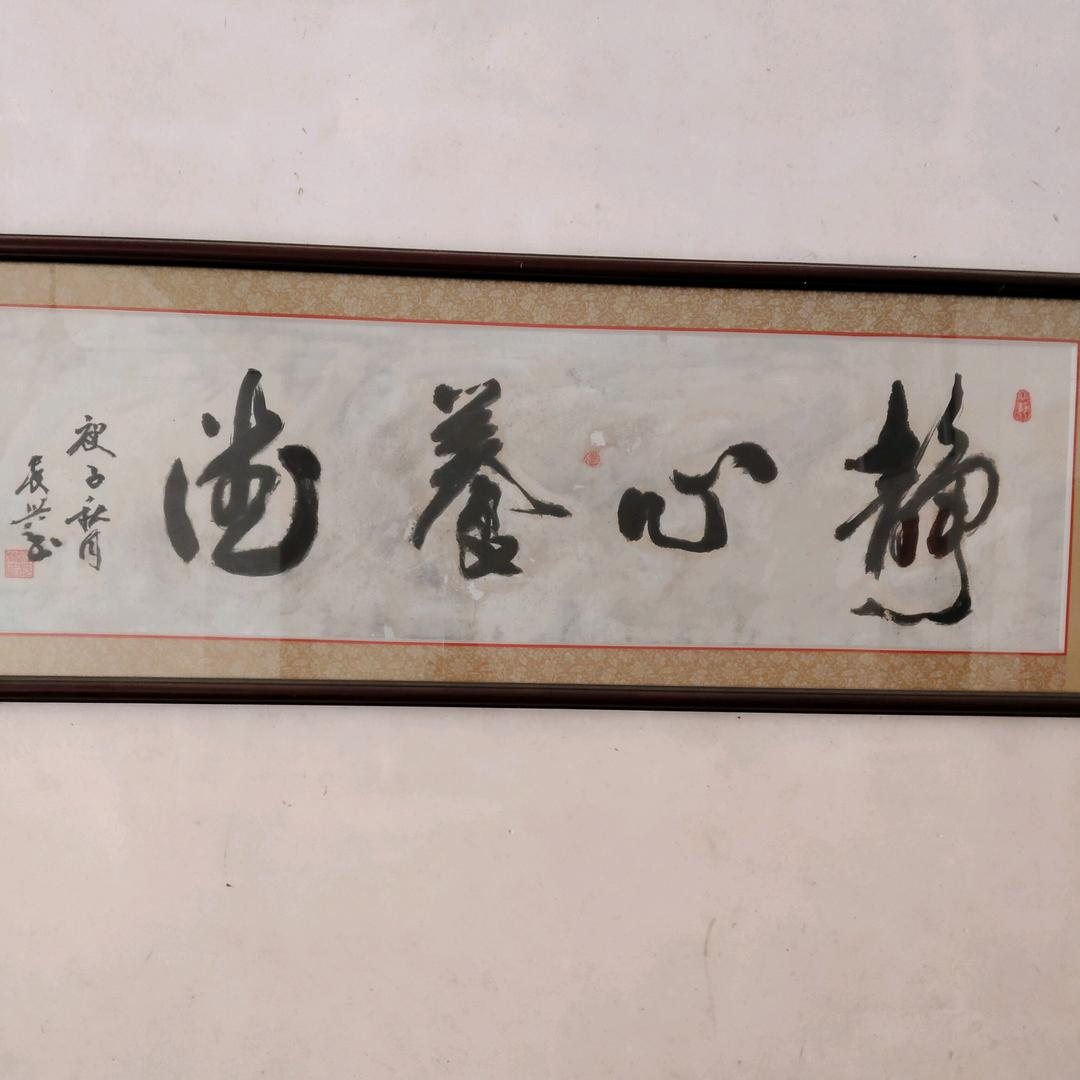 静心養德
庚子秋月
長興书